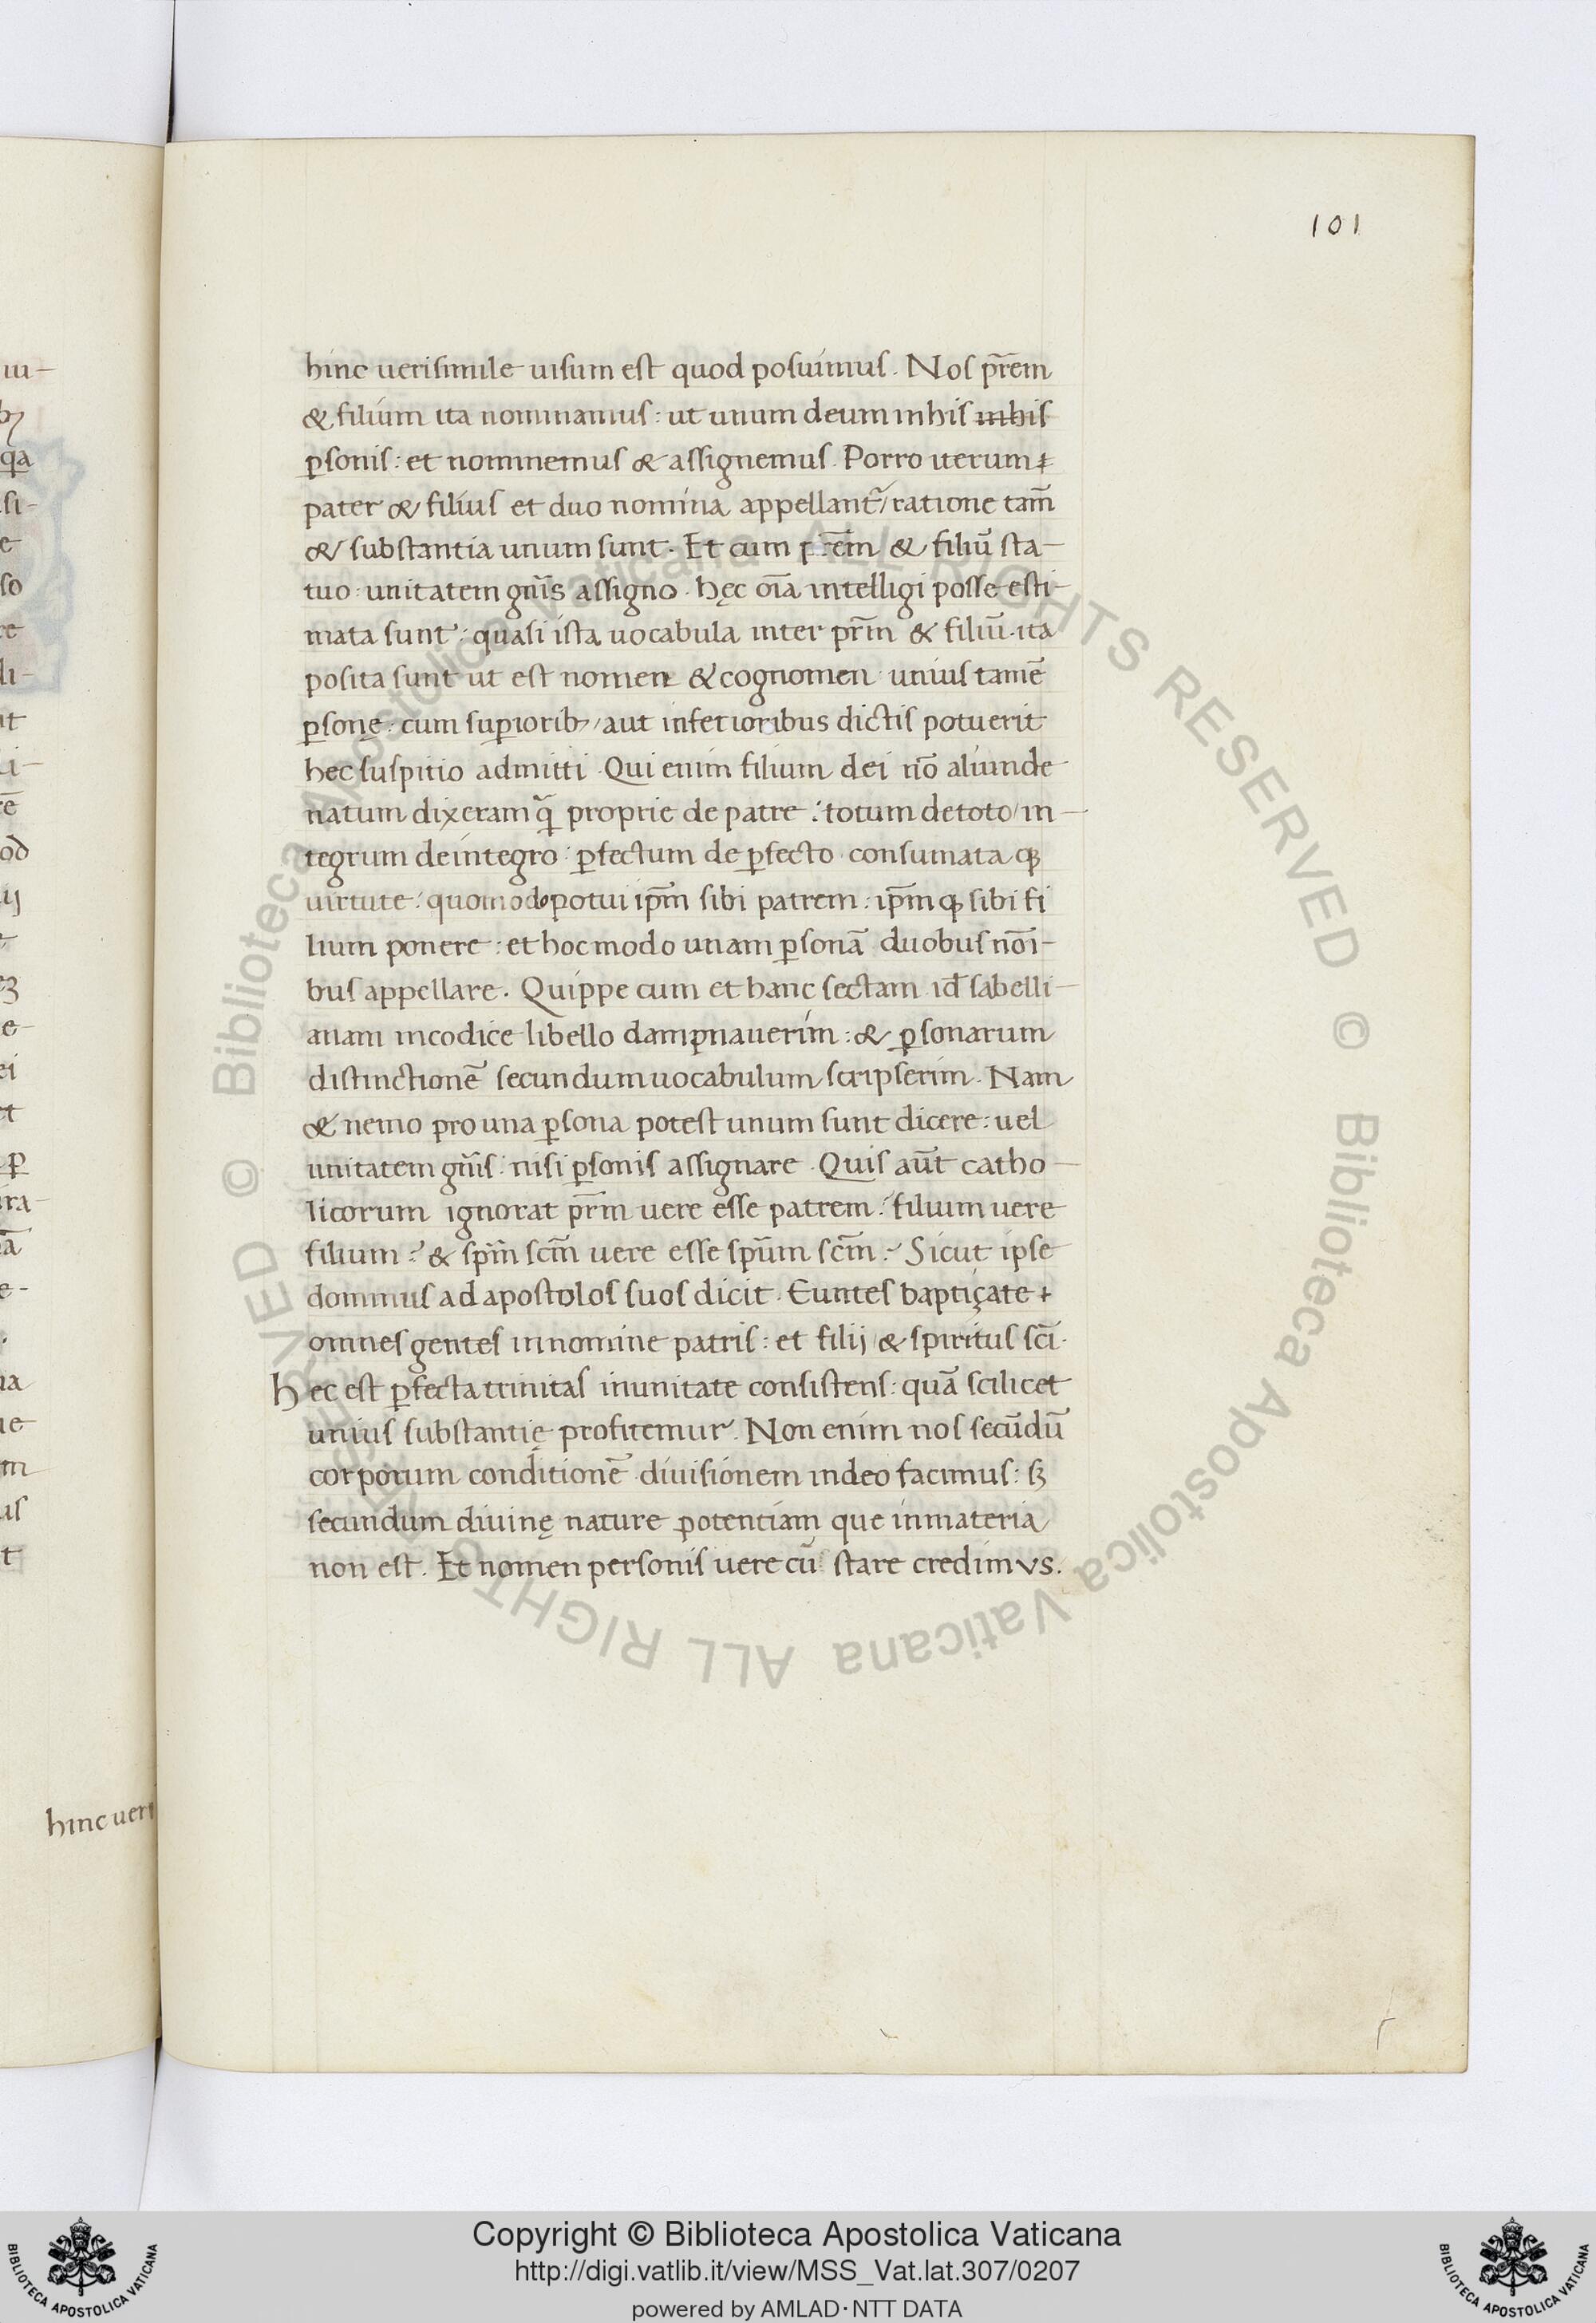 101
hinc uerisimile uisum est quod posuimus. Nos pr̄em
& filium ita nominamus: ut unum deum inhis inhis
ꝑsonis: et nominemus & assignemus. Porro iterum
pater & filius et duo nomina appellant᷑/ ratione tam̄
& substantia unum sunt. Et cum pr̄em & filiū sta-
tuo: unitatem gn̄is assigno. hęc oīa intelligi posse esti-
mata sunt: quasi ista uocabula inter pr̄m & filiū. ita
posita sunt ut est nomen & cognomen unius tamē
ꝑsonę: cum suꝑiorib; / aut inferioribus dictis potuerit
hec suspitio admitti. Qui enim filium dei nō aliunde
natum dixeram q̃ proprie de patre: totum detoto/ in-
tegrum deintegro: ꝑfectum de ꝑfecto consumata qꝫ
uirtute: quomodo potui ip̄m sibi patrem: ip̄m qꝫ sibi fi
lium ponere: et hoc modo unam ꝑsonā duobus noī-
bus appellare. Quippe cum et hanc sectam id̄ sabelli-
anam incodice libello dampnauerim: & ꝑsonarum
distinctionē secundum uocabulum scripserim. Nam
& nemo pro una ꝑsona potest unum sunt dicere: uel
unitatem gn̄is: nisi ꝑsonis assignare. Quis aūt catho-
licorum ignorat pr̄m uere esse patrem: filium uere
filium: & sp̄m sc̄m uere esse sp̄um sc̄m: Sicut ipse
dominus ad apostolos suos dicit. Euntes baptiçate
omnes gentes innomine patris: et filij & spiritus sc̄i.
hec est ꝑfecta trinitas inunitate consistens: quā scilicet
unius substantię profitemur. Non enim nos secūdū
corporum conditionē diuisionem indeo facimus: sꝫ
secundum diuinę nature potentiam que inmateria
non est. Et nomen personis uere cū stare credimvs.
hinc ueri
© Biblioteca Apostolica Vaticana ALL RIGHTS RESERVED
© Biblioteca Apostolica Vaticana ALL RIGHTS RESERVED
Copyright © Biblioteca Apostolica Vaticana
http://digi.vatlib.it/view/MSS_Vat.lat.307/0207
powered by AMLAD·NTT DATA
BIBLIOTECA APOSTOLICA VATICANA
BIBLIOTECA APOSTOLICA VATICANA